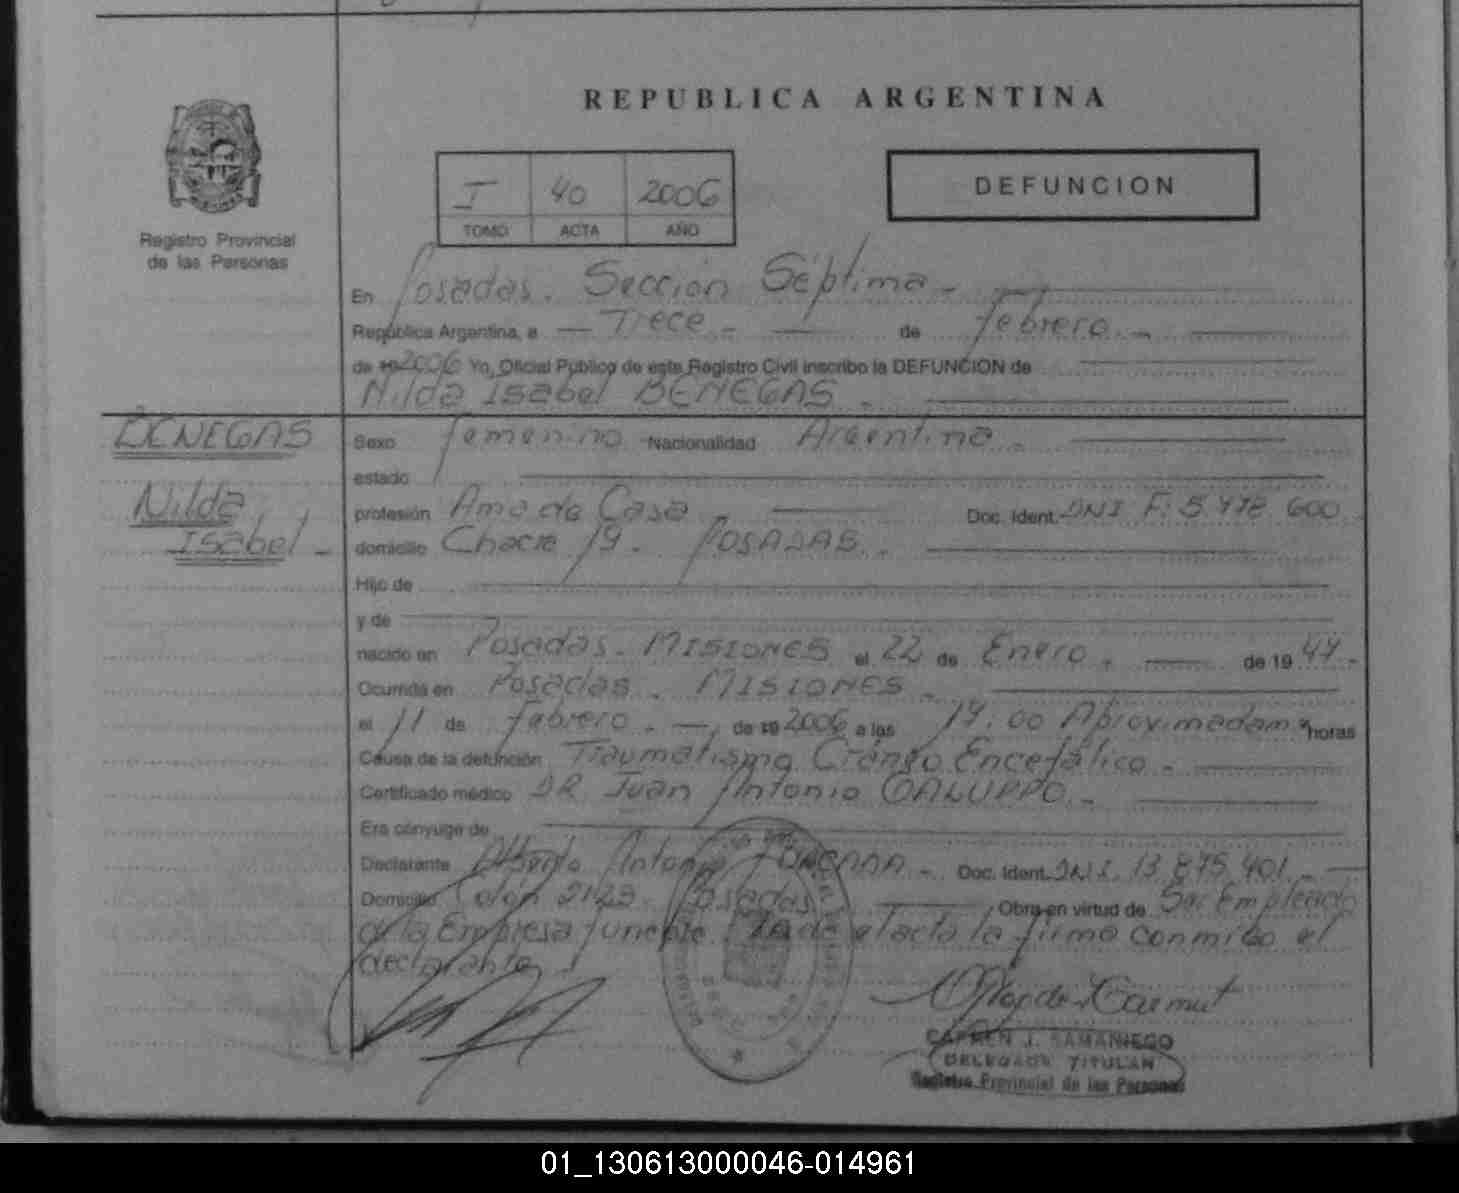 REPUBLICA ARGENTINA
I 40 2006
TOMO ACTA AÑO
DEFUNCION
Registro Provincial
de las Personas
En Posadas. Sección Séptima.-
República Argentina, a Trece.- de febrero.-
de 19 2006 Yo, Oficial Público de este Registro Civil inscribo la DEFUNCION de
Nilda Isabel BENEGAS.
BENEGAS
Nilda
Isabel.-
Sexo femenino Nacionalidad Argentina.-
estado
profesión Ama de Casa Doc. Ident. DNI F. 5.478.600
domicilio Chacra 19. POSADAS.
Hijo de
y de
nacido en Posadas. MISIONES el 22 de Enero. de 19 47.-
Ocurrida en Posadas. MISIONES.
el 11 de febrero.- de 19 2006 a las 19:00 Aproximadam. horas
Causa de la defunción Traumatismo Cráneo Encefálico.-
Certificado médico DR. Juan Antonio GALUPPO.-
Era cónyuge de
Declarante Alberto Antonio Doc. Ident. DNI. 13.875.401.-
Domicilio Colón 2123. Posadas Obra en virtud de Ser Empleado
de la Empresa funebre. el acta la firma conmigo el
declarante
CARMEN J. SAMANIEGO
DELEGADA TITULAR
Registro Provincial de las Personas
01_130613000046-014961